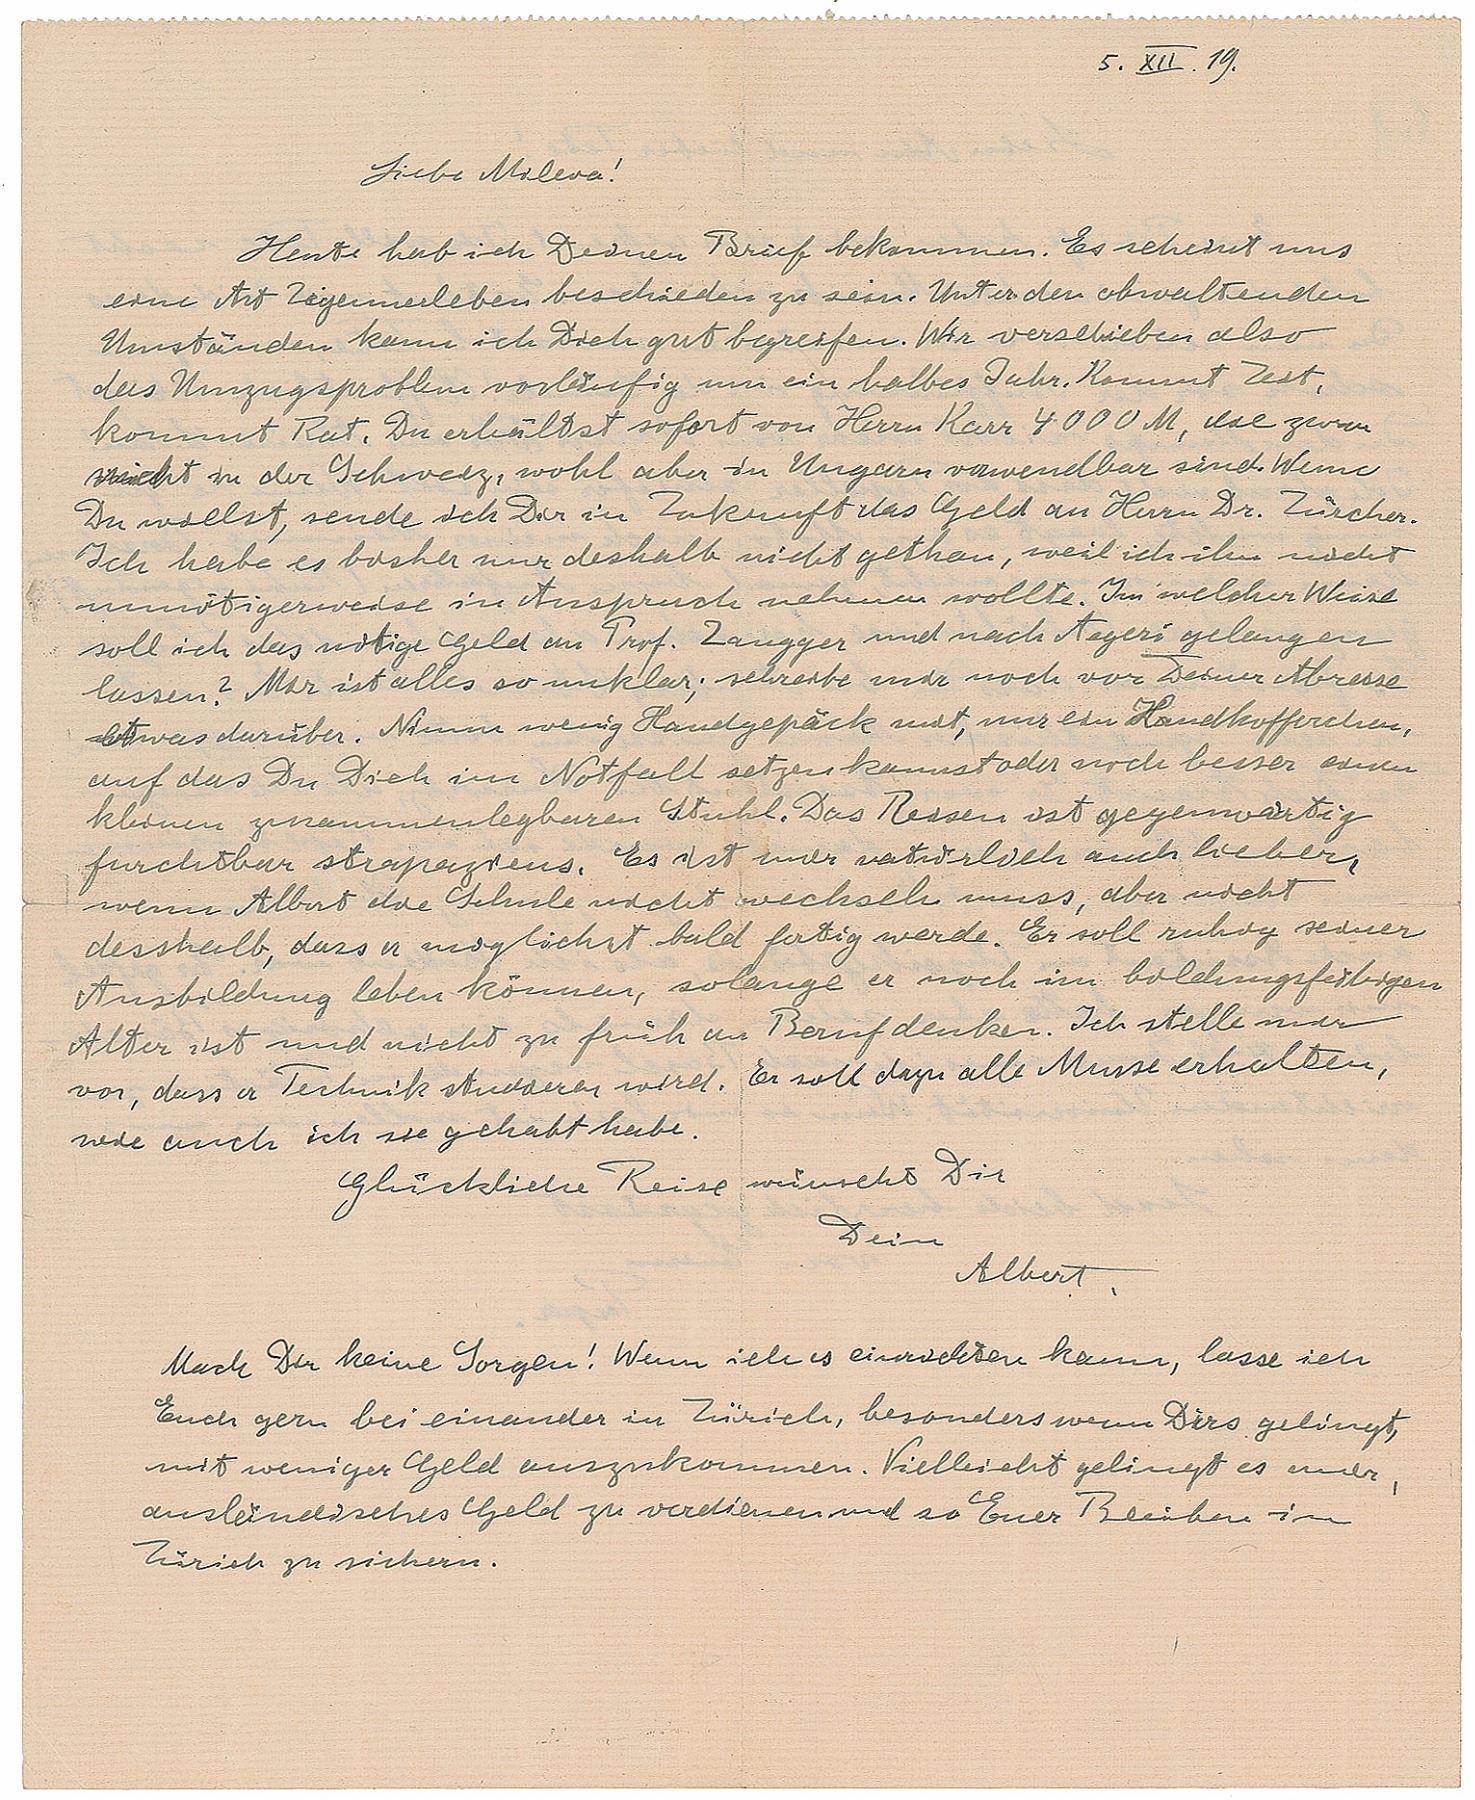 5. XII. 19.
Liebe Mileva!
Heute hab ich Deinen Brief bekommen. Es scheint uns
eine Art Zigeunerleben beschieden zu sein. Unter den obwaltenden
Umständen kann ich Dich gut begreifen. Wir verschieben also
das Umzugsproblem vorläufig um ein halbes Jahr. Kommt Zeit,
kommt Rat. Du erhältst sofort von Herrn Karr 4000 M, die zwar
nicht in der Schweiz, wohl aber in Ungarn verwendbar sind. Wenn
Du willst, sende ich Dir in Zukunft das Geld an Herrn Dr. Zürcher.
Ich habe es bisher nur deshalb nicht gethan, weil ich ihn nicht
unnötigerweise in Anspruch nehmen wollte. In welcher Weise
soll ich das nötige Geld an Prof. Zangger und nach Aegeri gelangen
lassen? Mir ist alles so unklar; schreibe mir noch vor Deiner Abreise
etwas darüber. Nimm wenig Handgepäck mit, nur ein Handkofferchen,
auf das Du Dich im Notfall setzen kannst oder noch besser einen
kleinen zusammenlegbaren Stuhl. Das Reisen ist gegenwärtig
furchtbar strapaziös. Es ist mir natürlich auch lieber,
wenn Albert die Schule nicht wechseln muss, aber nicht
desshalb, dass er möglichst bald fertig werde. Er soll ruhig seiner
Ausbildung leben können, solange er noch im bildungsfähigen
Alter ist und nicht zu früh an Beruf denken. Ich stelle mir
vor, dass er Technik studieren wird. Er soll dazu alle Musse erhalten,
wie auch ich sie gehabt habe.
Glückliche Reise wünscht Dir
Dein
Albert.
Mach Dir keine Sorgen! Wenn ich es einrichten kann, lasse ich
Euch gern bei einander in Zürich, besonders wenn Dirs gelingt,
mit weniger Geld auszukommen. Vielleicht gelingt es mir,
ausländisches Geld zu verdienen und so Euer Bleiben in
Zürich zu sichern.